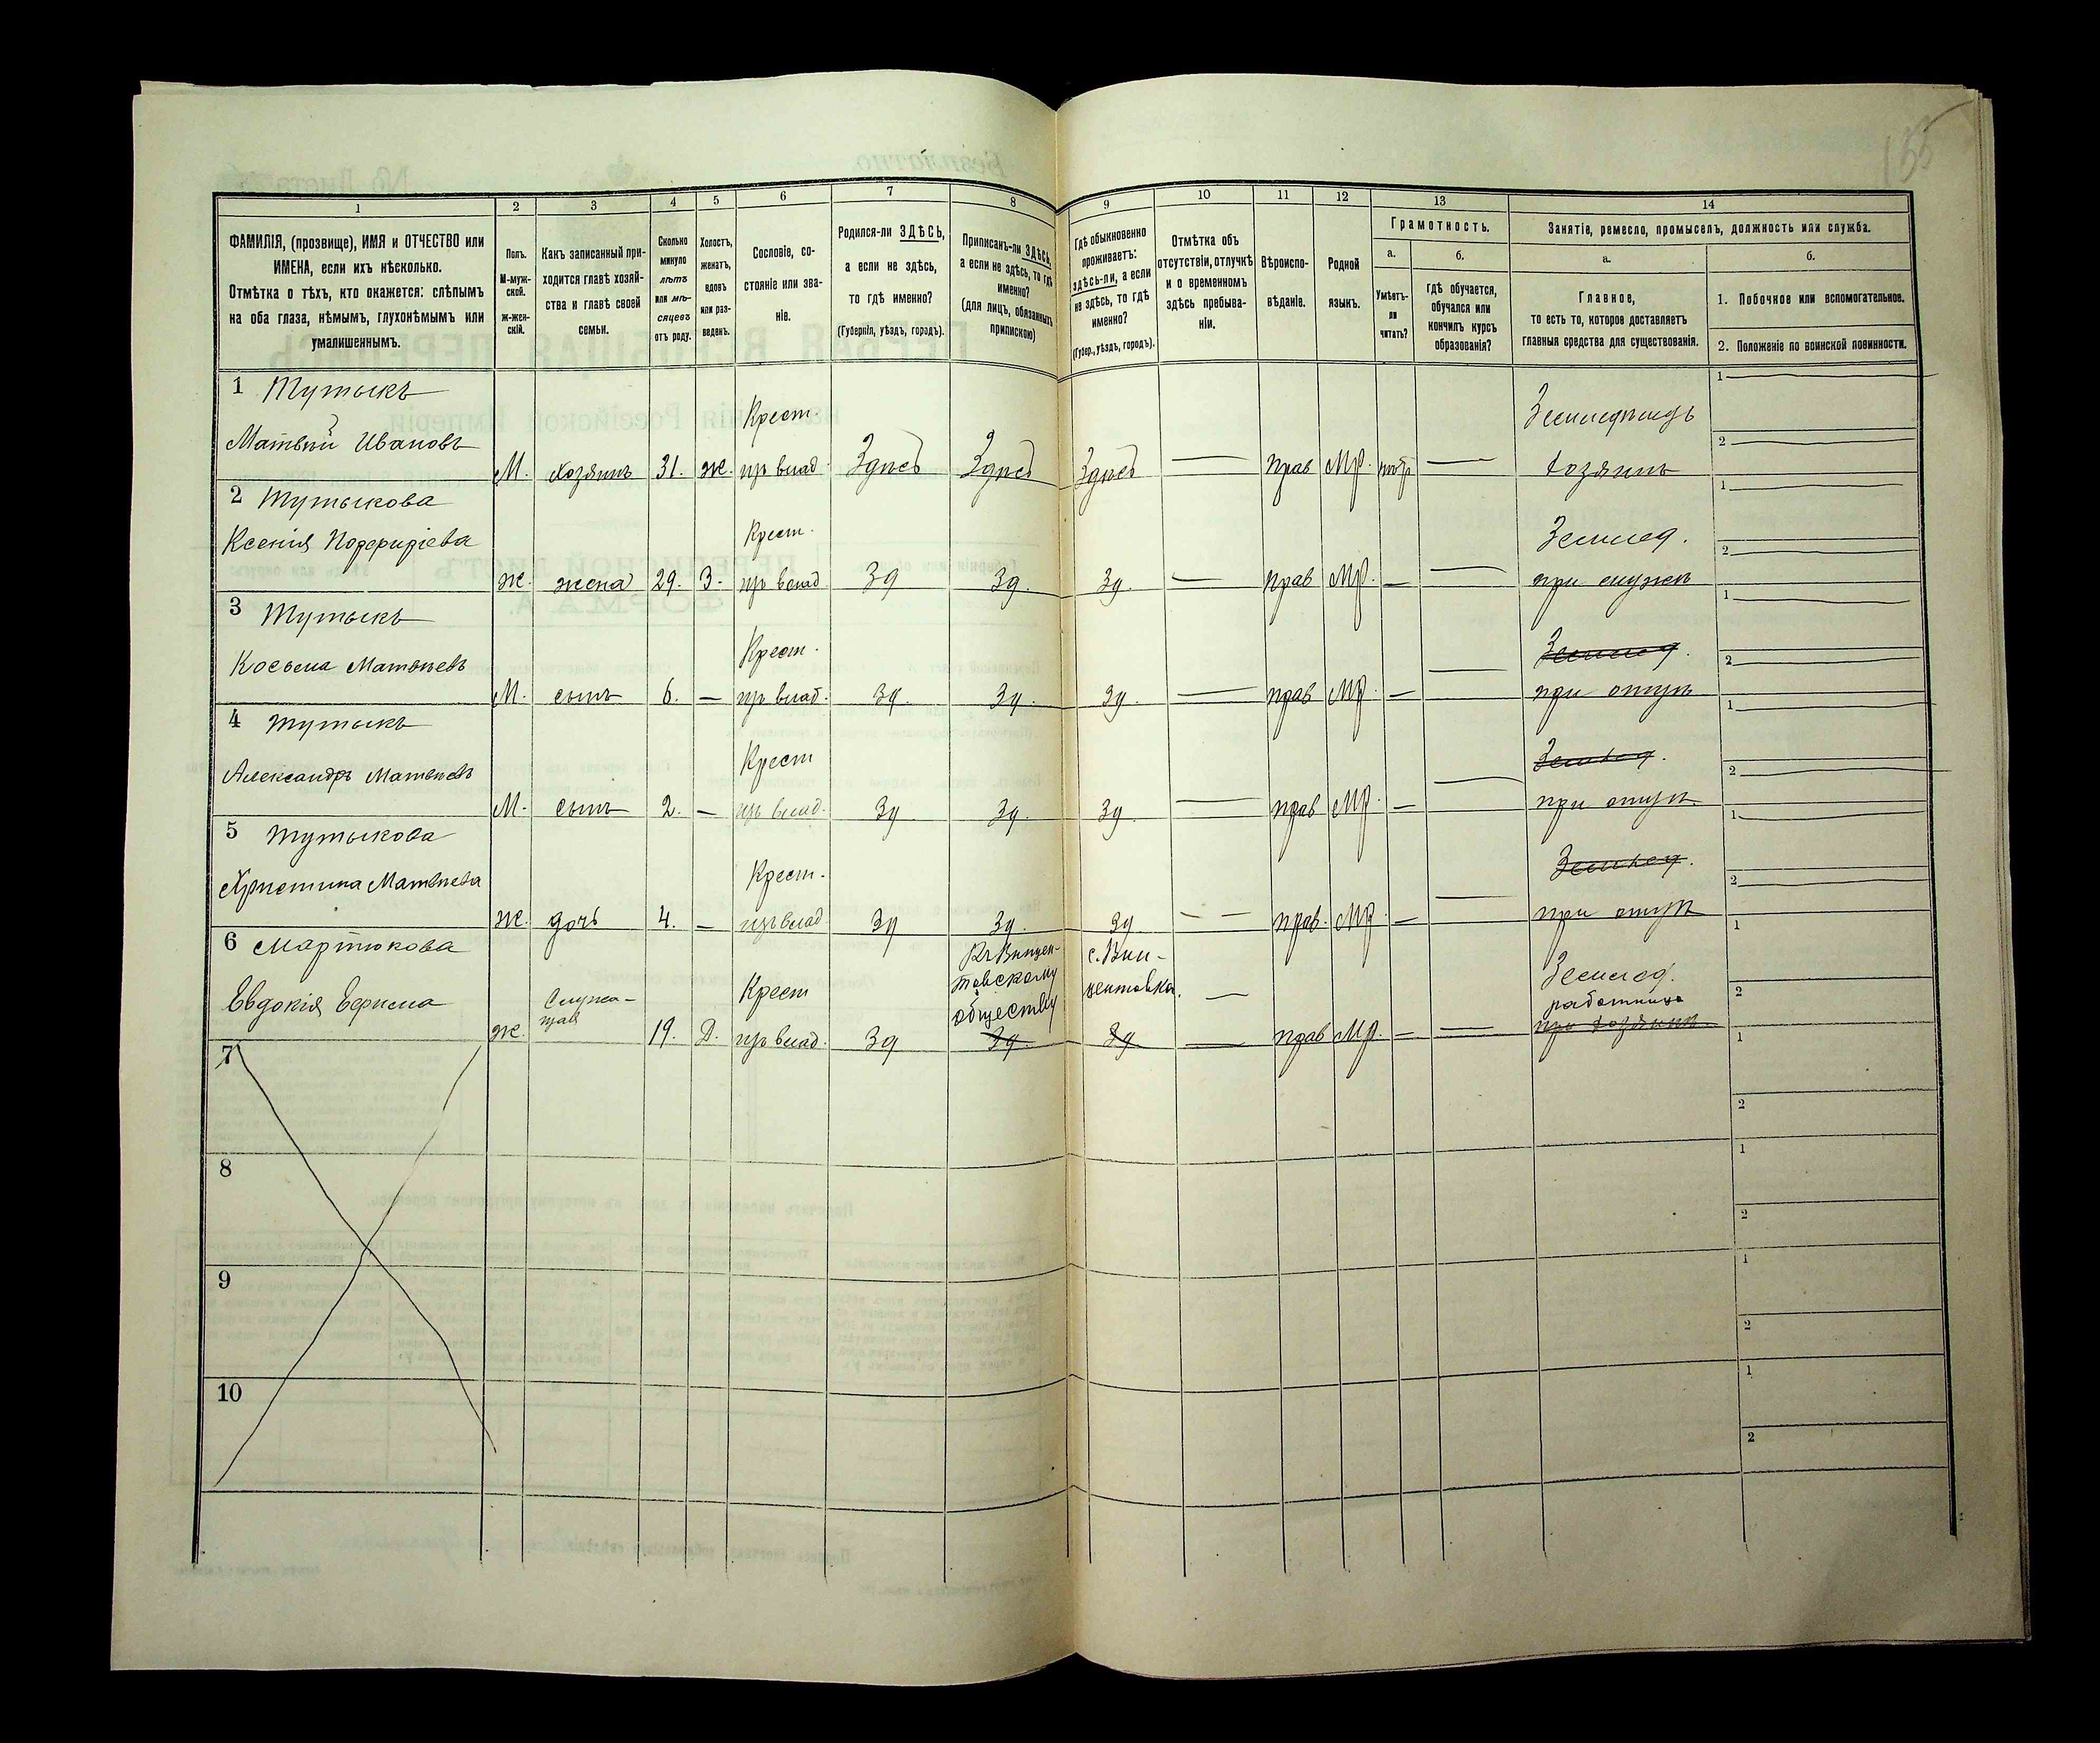 155
1
2
3
4
5
6
7
8
9
10
11
12
13
14
ФАМИЛІЯ, (прозвище), ИМЯ и ОТЧЕСТВО или
ИМЕНА, если ихъ нѣсколько.
Отмѣтка о тѣхъ, кто окажется: слѣпымъ
на оба глаза, нѣмымъ, глухонѣмымъ или
умалишеннымъ.
Полъ.
М-муж-
ской.
ж-жен-
скій.
Какъ записанный при-
ходится главѣ хозяй-
ства и главѣ своей
семьи.
Сколько
минуло
лѣтъ
или мѣ-
сяцевъ
отъ роду.
Холостъ,
женатъ,
вдовъ
или раз-
веденъ.
Сословіе, со-
стояніе или зва-
ніе.
Родился-ли ЗДѢСЬ,
а если не здѣсь,
то гдѣ именно?
(Губернія, уѣздъ, городъ).
Приписанъ-ли ЗДѢСЬ,
а если не здѣсь, то гдѣ
именно?
(для лицъ, обязанныхъ
припискою)
Гдѣ обыкновенно
проживаетъ:
здѣсь-ли, а если
не здѣсь, то гдѣ
именно?
(Губер., уѣздъ, городъ).
Отмѣтка объ
отсутствіи, отлучкѣ
и о временномъ
здѣсь пребыва-
ніи.
Вѣроиспо-
вѣданіе.
Родной
языкъ.
Грамотность.
а.
Умѣетъ-
ли
читать?
б.
гдѣ обучается,
обучался или
кончилъ курсъ
образованія?
Занятіе, ремесло, промыселъ, должность или служба.
а.
Главное,
то есть то, которое доставляетъ
главныя средства для существованія.
б.
1. Побочное или вспомогательное.
2. Положеніе по воинской повинности.
1 Тутыкъ
Матвѣй Ивановъ
М. хозяинъ 31. ж.
Крест.
изъ влад. Здѣсь Здѣсь Здѣсь — прав МР. —
Земледѣлецъ
хозяинъ
1
2
2 Тутыкова
Ксенія
ж. жена 29. З.
Крест.
изъ влад. Зд Зд. Зд. — прав МР. — —
Землед.
при мужѣ
1
2
3 Тутыкъ
Косьма Матвѣевъ
М. сынъ 6. —
Крест.
изъ влад. Зд. Зд. Зд. — прав МР. — —
Землед.
при отцѣ
1
2
4 Тутыкъ
Александръ Матвѣевъ
М. сынъ 2. —
Крест
изъ влад. Зд Зд. Зд — прав МР. — —
Землед.
при отцѣ
1
2
5 Тутыкова
Христина Матвѣева
ж. дочь 4. —
Крест.
изъ влад Зд Зд. Зд — — прав. МР. — —
Землед.
при отцѣ
1
2
6 Мартюкова
Евдокія
ж. Служа-
щая
19. Д.
Крест
изъ влад. Зд
Къ Винцен-
товскому
обществу
Зд.
с. Вин-
центовка.
Зд
— прав МР. — —
Землед.
работница
при хозяинѣ
1
2
7
1
2
8
1
2
9
1
2
10
1
2